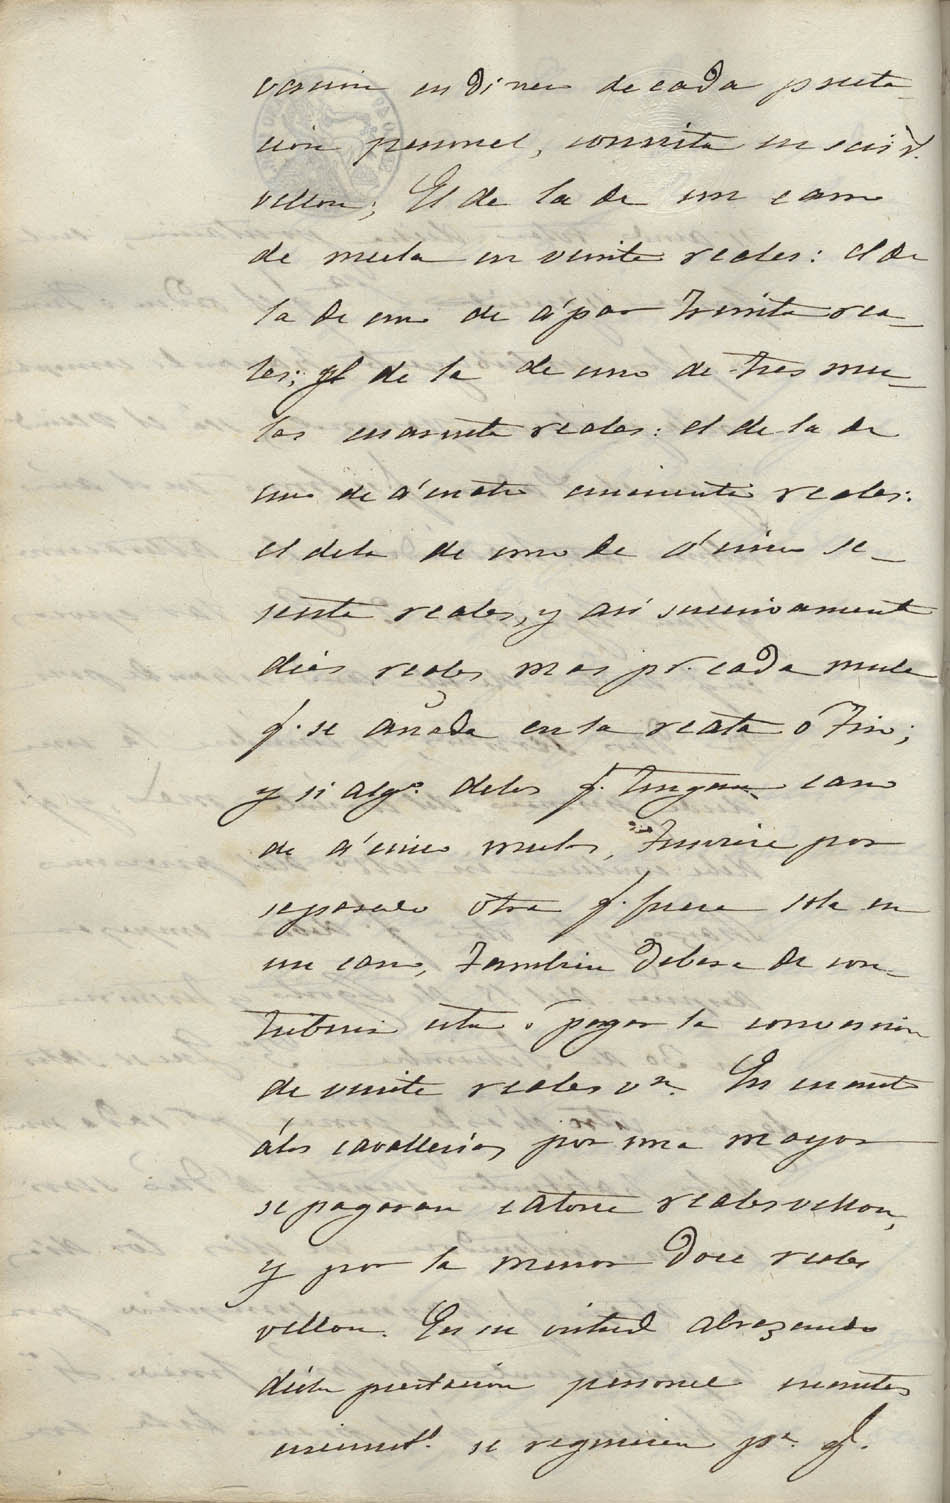 version en dinero de cada presta-
cion personal, consista en seis r.s
vellon; El de la de un carro
de mula en veinte reales: el de
la de uno de á par treinta rea-
les; y el de la de uno de tres mu-
las cuarenta reales: el de la de
uno de á cuatro cincuenta reales:
el dela de uno de á cinco se-
senta reales, y asi sucesivamente
dies reales mas pr. cada mula
q.e se añada en la reata o tiro;
y si alg.o delos q.e tengan carro
de á cinco mulas, tuviere por
separado otra q.e fuere sola en
un carro, tambien debera de con-
tribuir esta ó pagar la conversion
de veinte reales vn. En cuanto
álas cavallerias por una mayor
se pagaran catorce reales vellon,
y por la menor doce reales
vellon. En su virtud abrazando
dicha prestacion personal cuantos
se requieren pa. q.e